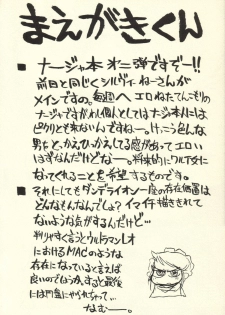 まえがきくん
■ ナージャ本オニ弾ですぞー!!
前回と同じくシルヴィねーさんが
メインですの。毎週へエロねたてんこもりの
ナージャですがわし個人としてはナージャ本には
ピクリとも来ないんですねー。けっこう色んな
男をとっかえひっかえしてる感があってエロい
はずなんだけどなー。将来的にワルな女に
なってくれることを希望するものです。
■ それにしてもダンデライオン一座の存在価値は
どんなもんなんでしょ?イマイチ描ききれて
ないような気がするんだけど…
判りやすく言うとウルトラマンレオ
におけるMACのような
存在になっているといえば
良いのでしょうか。すると最後
には円盤にやられちゃって…
なむー。